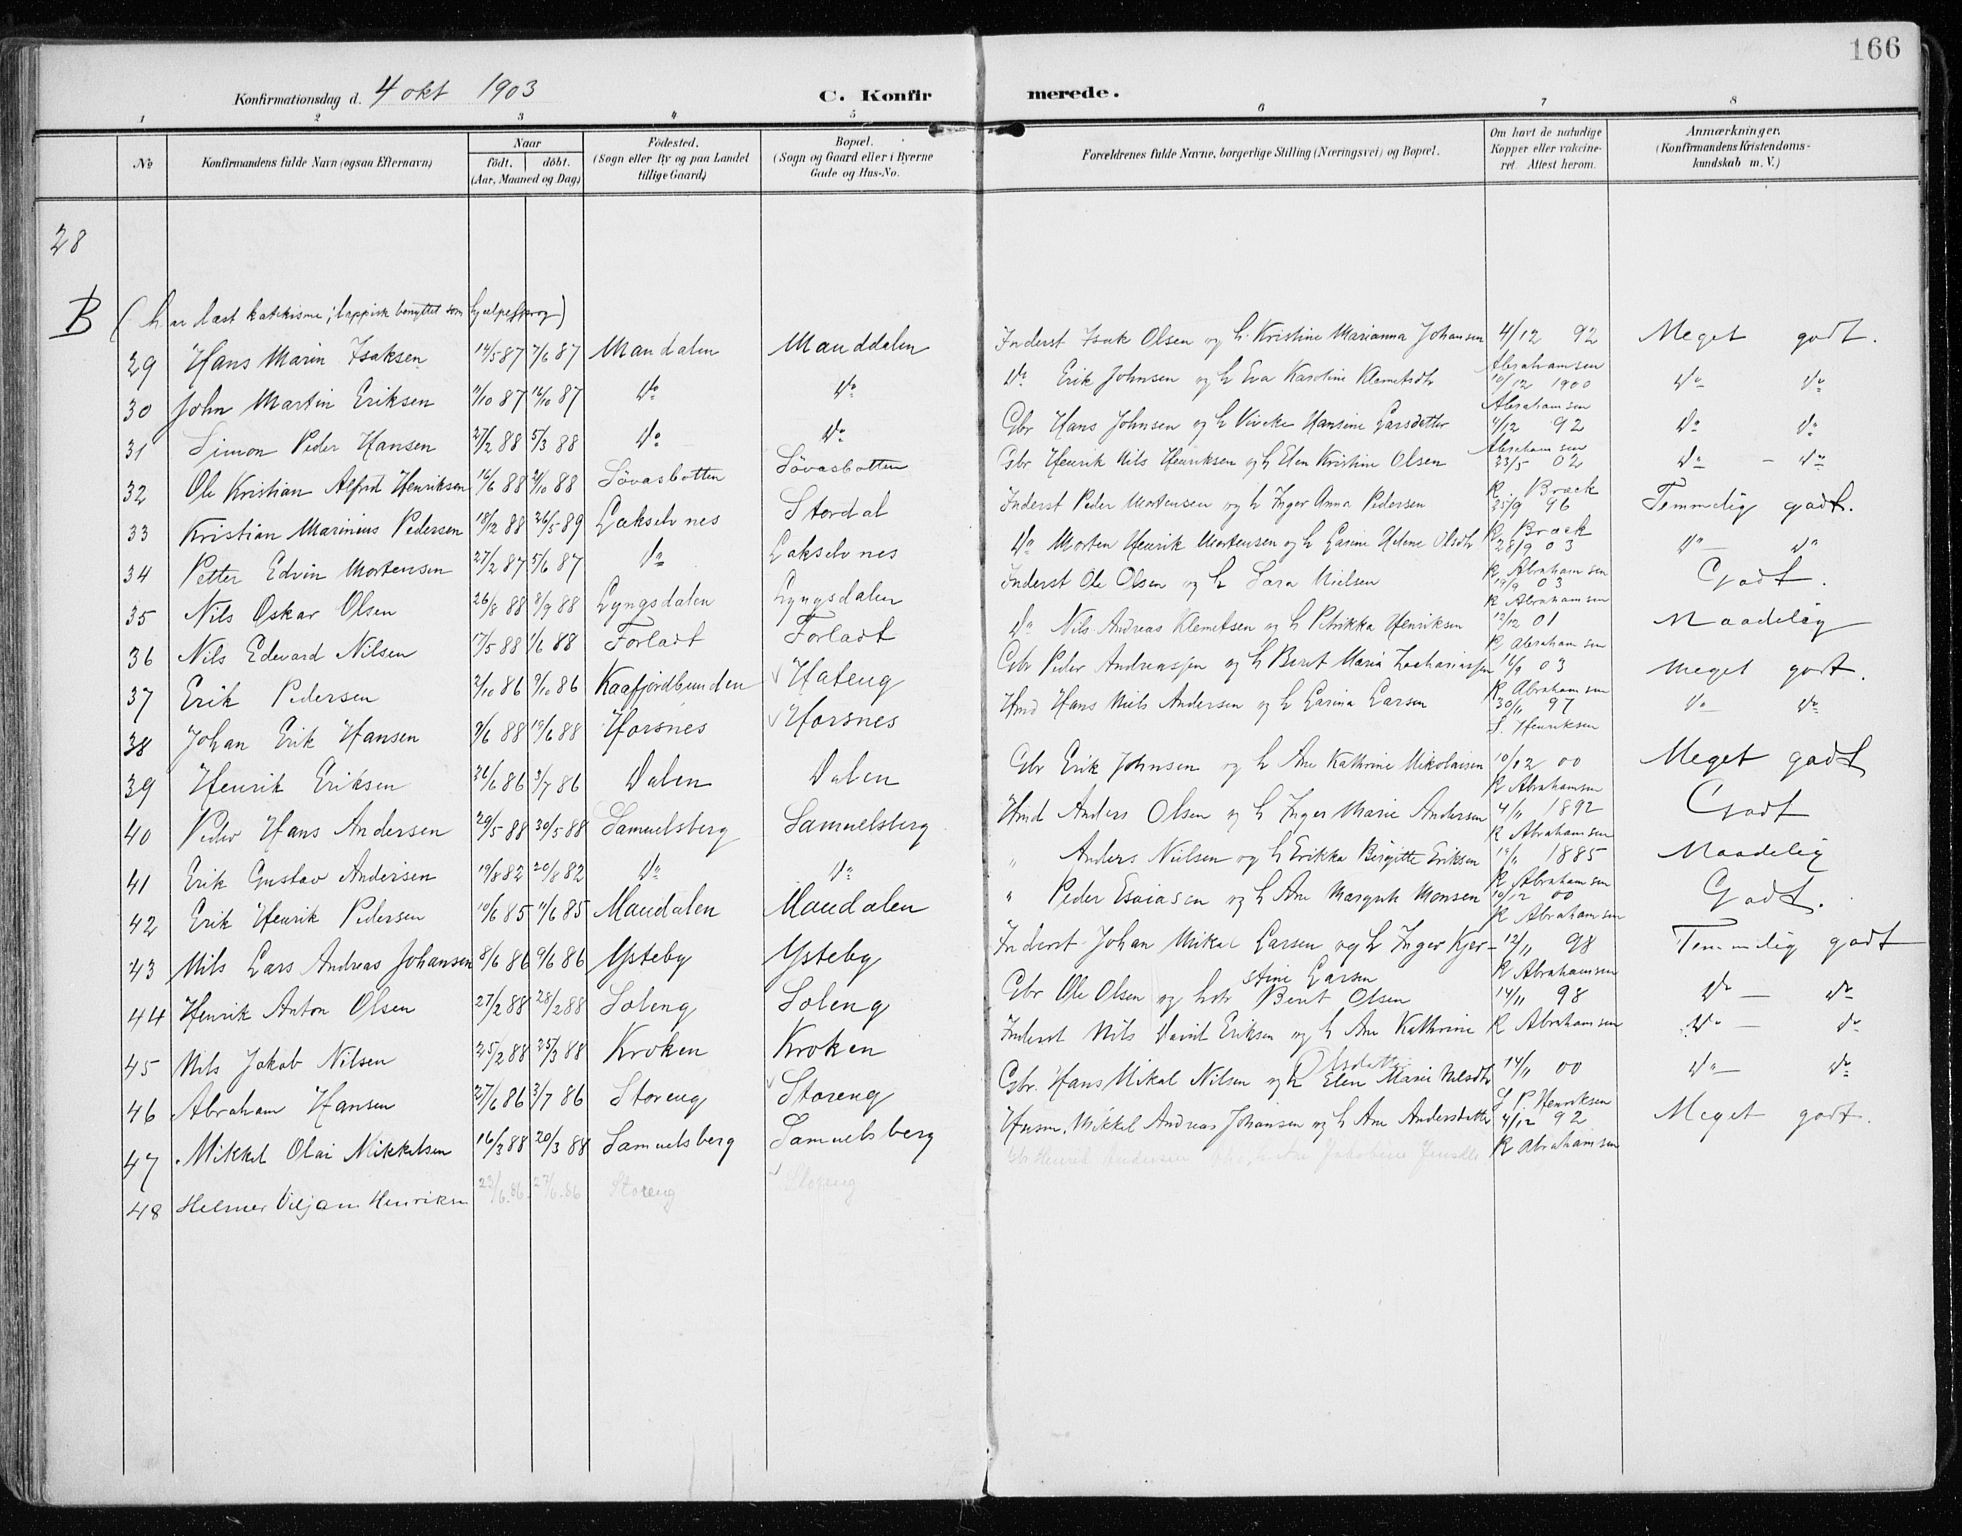 166
Konfirmationsdag d. 4 okt 1903 C. Konfir merede.
1 2 3 4 5 6 7 8
No Konfirmandens fulde Navn (ogsaa Efternavn) Naar født. døbt. (Aar, Maaned og Dag) Fødested. (Sogn eller By og paa Landet tillige Gaard) Bopæl. (Sogn og Gaard eller i Byerne Gade og Hus-No. Forældrenes fulde Navne, borgerlige Stilling (Næringsvei) og Bopæl. Om havt de naturlige Kopper eller vakcineret. Attest herom. Anmærkninger. (Konfirmandens Kristendomskundskab m. V.)
28
B (har læst katekisme; lappisk benyttet som hjælpesprog)
29 Hans Marin Isaksen 14/5 87 7/6 87 Mandalen Manddalen Inderst Isak Olsen og h. Kristine Marianna Johansen 4/12 92 Abrahamsen Meget godt.
30 John Martin Eriksen /10 87 16/10 87 Do Do Do Erik Johnsen og h Eva Karoline Klemetsdtr 10/12 1900 Abrahamsen Do Do
31 Simon Peder Hansen 27/2 88 5/3 88 Do Do Gbr Hans Johnsen og h Viveke Hansine Larsdatter 4/12 92 Abrahamsen Do Do
32 Ole Kristian Alfred Henriksen 16/6 88 /10 88 Løvasbotten Løvasbotten Gbr Henrik Nils Henriksen og h Elen Kristine Olsen 23/5 02 R Brock Do - Do
33 Kristian Marinius Pedersen 18/12 88 26/5 89 Lakselvnes Stordal Inderst Peder Mortensen og h Inger Anna Pedersen 25/9 96 R Brock Temmelig godt.
34 Petter Edvin Mortensen 27/2 87 5/6 87 Do Lakselvnes Do Morten Henrik Mortensen og h Larine Helene Olsdtr 28/9 03 R Abrahamsen Do - Do
35 Nils Oskar Olsen 26/8 88 8/9 88 Lyngsdalen Lyngsdalen Inderst Ole Olsen og h Sara Nielsen 19/9 03 R Abrahamsen Godt.
36 Nils Edevard Nilsen 17/5 88 1/6 88 Forladt Forladt Do Nils Andreas Klemetsen og h Petrikka Henriksen 12/12 01 R Abrahamsen Maadelig
37 Erik Pedersen 2/10 86 9/10 86 Kaafjordbunden Hateng Gbr Peder Andreassen og h Berit Maria Zachariassen 16/9 03 R Abrahamsen Meget godt.
38 Johan Erik Hansen 9/6 88 19/6 88 Horsnes Horsnes Hmd Hans Nils Andersen og h Larina Larsen 30/11 97 L. Henriksen Do Do
39 Henrik Eriksen 26/6 86 3/7 86 Dalen Dalen Gbr Erik Johnsen og h Ane Kathrine Nikolaisen 10/12 00 R Abrahamsen Meget godt
40 Peder Hans Andersen 29/5 88 30/5 88 Samuelsberg Samuelsberg Hmd Anders Olsen og h Inger Marie Andersen 4/11 1892 R Abrahamsen Godt
41 Erik Gustav Andersen 19/8 82 20/8 82 Do Do " Anders Nielsen og h Erikka Birgitte Eriksen 19/11 1885 R Abrahamsen Maadelig
42 Erik Henrik Pedersen 10/6 85 11/6 85 Mandalen Mandalen " Peder Esaiasen og h Ane Margreth Monsen 10/12 00 R Abrahamsen Godt.
43 Nils Lars Andreas Johansen 8/6 86 9/6 86 Ysteby Ysteby Inderst Johan Mikal Larsen og h Inger Kjerstine Larsen 12/11 98 R Abrahamsen Temmelig godt
44 Henrik Anton Olsen 27/2 88 28/2 88 Soleng Soleng Gbr Ole Olsen og hstr Berit Olsen 14/11 98 R Abrahamsen Do - Do
45 Nils Jakob Nilsen 25/2 88 25/3 88 Kroken Kroken Inderst Nils David Eriksen og h Ane Kathrine Olsdatter Do - Do
46 Abraham Hansen 27/6 86 3/7 86 Storeng Storeng Gbr. Hans Mikal Nilsen og h Elen Marie Nilsdtr 14/11 00 L P Henriksen Do - Do
47 Mikkel Olai Mikkelsen 16/3 88 20/3 88 Samuelsberg Samuelsberg Husm. Mikkel Andreas Johansen og h Ane Andersdatter 4/12 92 R Abrahamsen Meget godt.
48 Helmer Viljam Henriksn 23/6.86 27/6.86 Storeng Storeng Gbr Henrik Andersen Jakobine